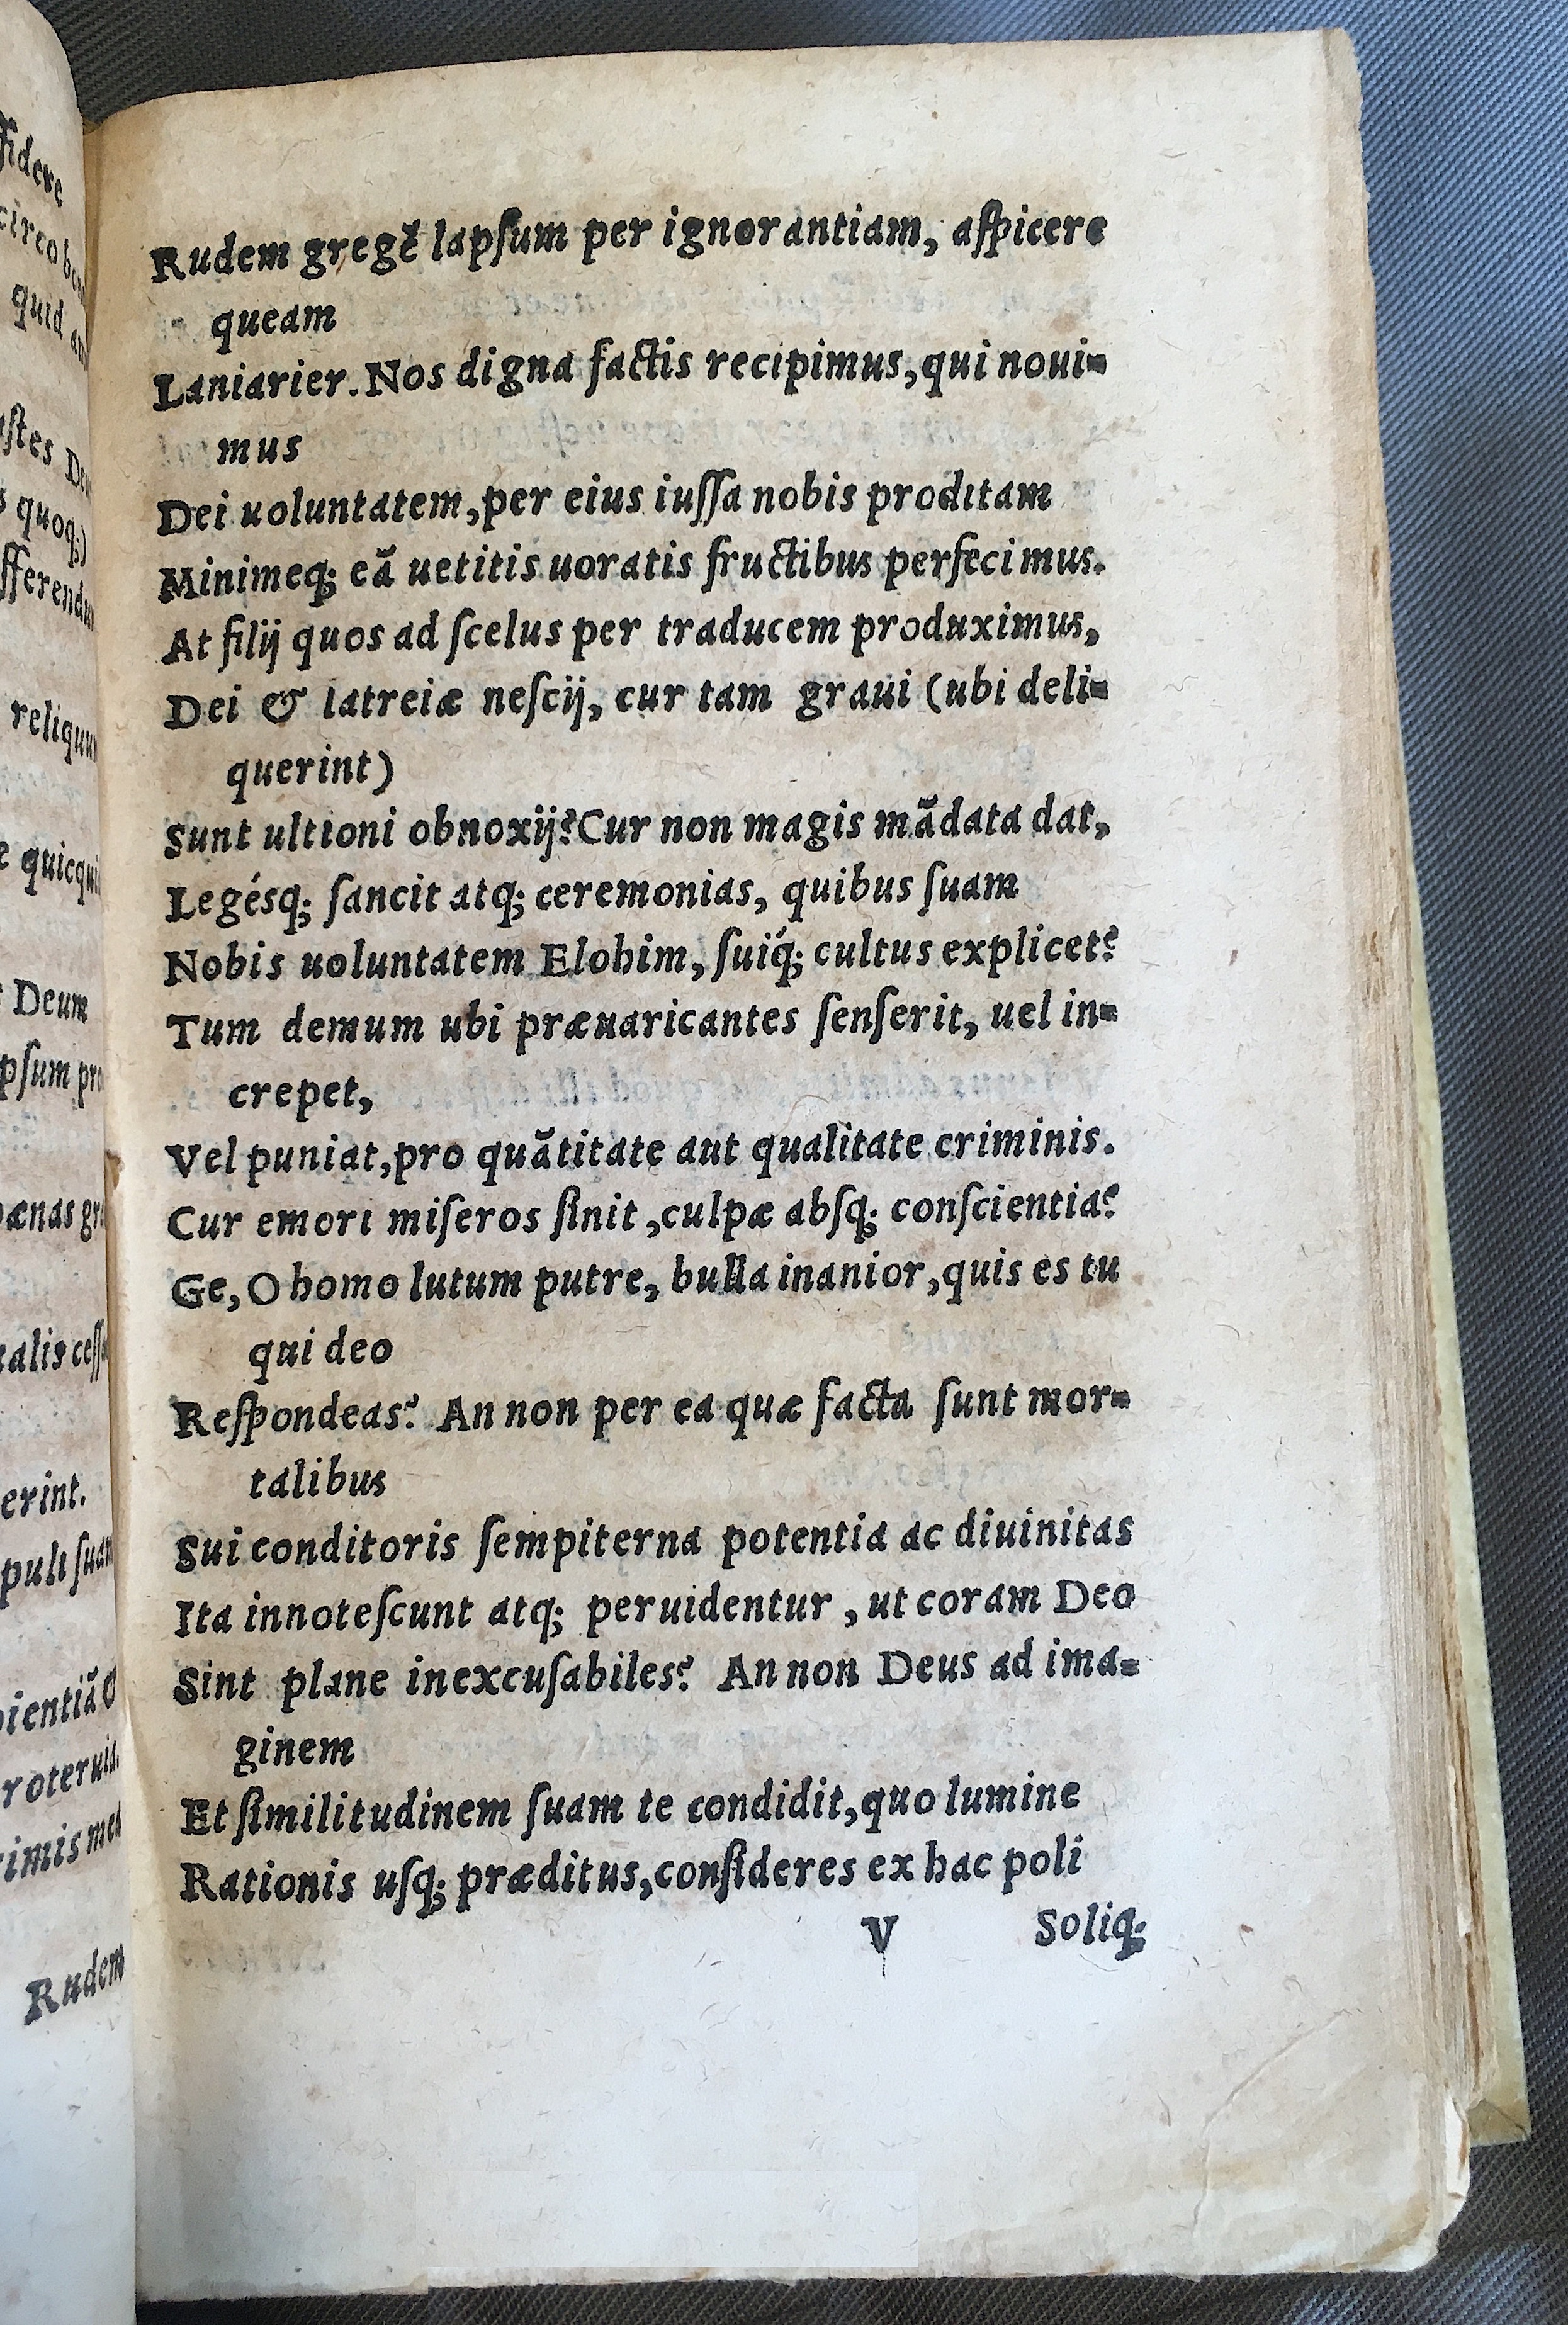 Rudem gregẽ lapſum per ignorantiam, aſpicere
queam
Laniarier. Nos digna factis recipimus, qui noui-
mus
Dei uoluntatem, per eius iuſſa nobis proditam
Minimeq; eã uetitis uoratis fructibus perfecimus.
At filij quos ad ſcelus per traducem produximus,
Dei & latreiæ neſcij, cur tam graui (ubi deli-
querint)
Sunt ultioni obnoxij? Cur non magis mãdata dat,
Legésq; ſancit atq; ceremonias, quibus ſuam
Nobis uoluntatem Elohim, ſuiq́; cultus explicet?
Tum demum ubi præuaricantes ſenſerit, uel in-
crepet,
Vel puniat, pro quãtitate aut qualitate criminis.
Cur emori miſeros ſinit, culpæ absq; conſcientia?
Ge, O homo lutum putre, bulla inanior, quis es tu
qui deo
Reſpondeas? An non per ea quæ facta ſunt mor-
talibus
Sui conditoris ſempiterna potentia ac diuinitas
Ita innoteſcunt atq; peruidentur, ut coram Deo
Sint plane inexcuſabiles? An non Deus ad ima-
ginem
Et ſimilitudinem ſuam te condidit, quo lumine
Rationis uſq; præditus, conſideres ex hac poli
V Soliq;
Fidere
quid
quoq;)
reliquum
Deum
pænas
erint.
Rudem